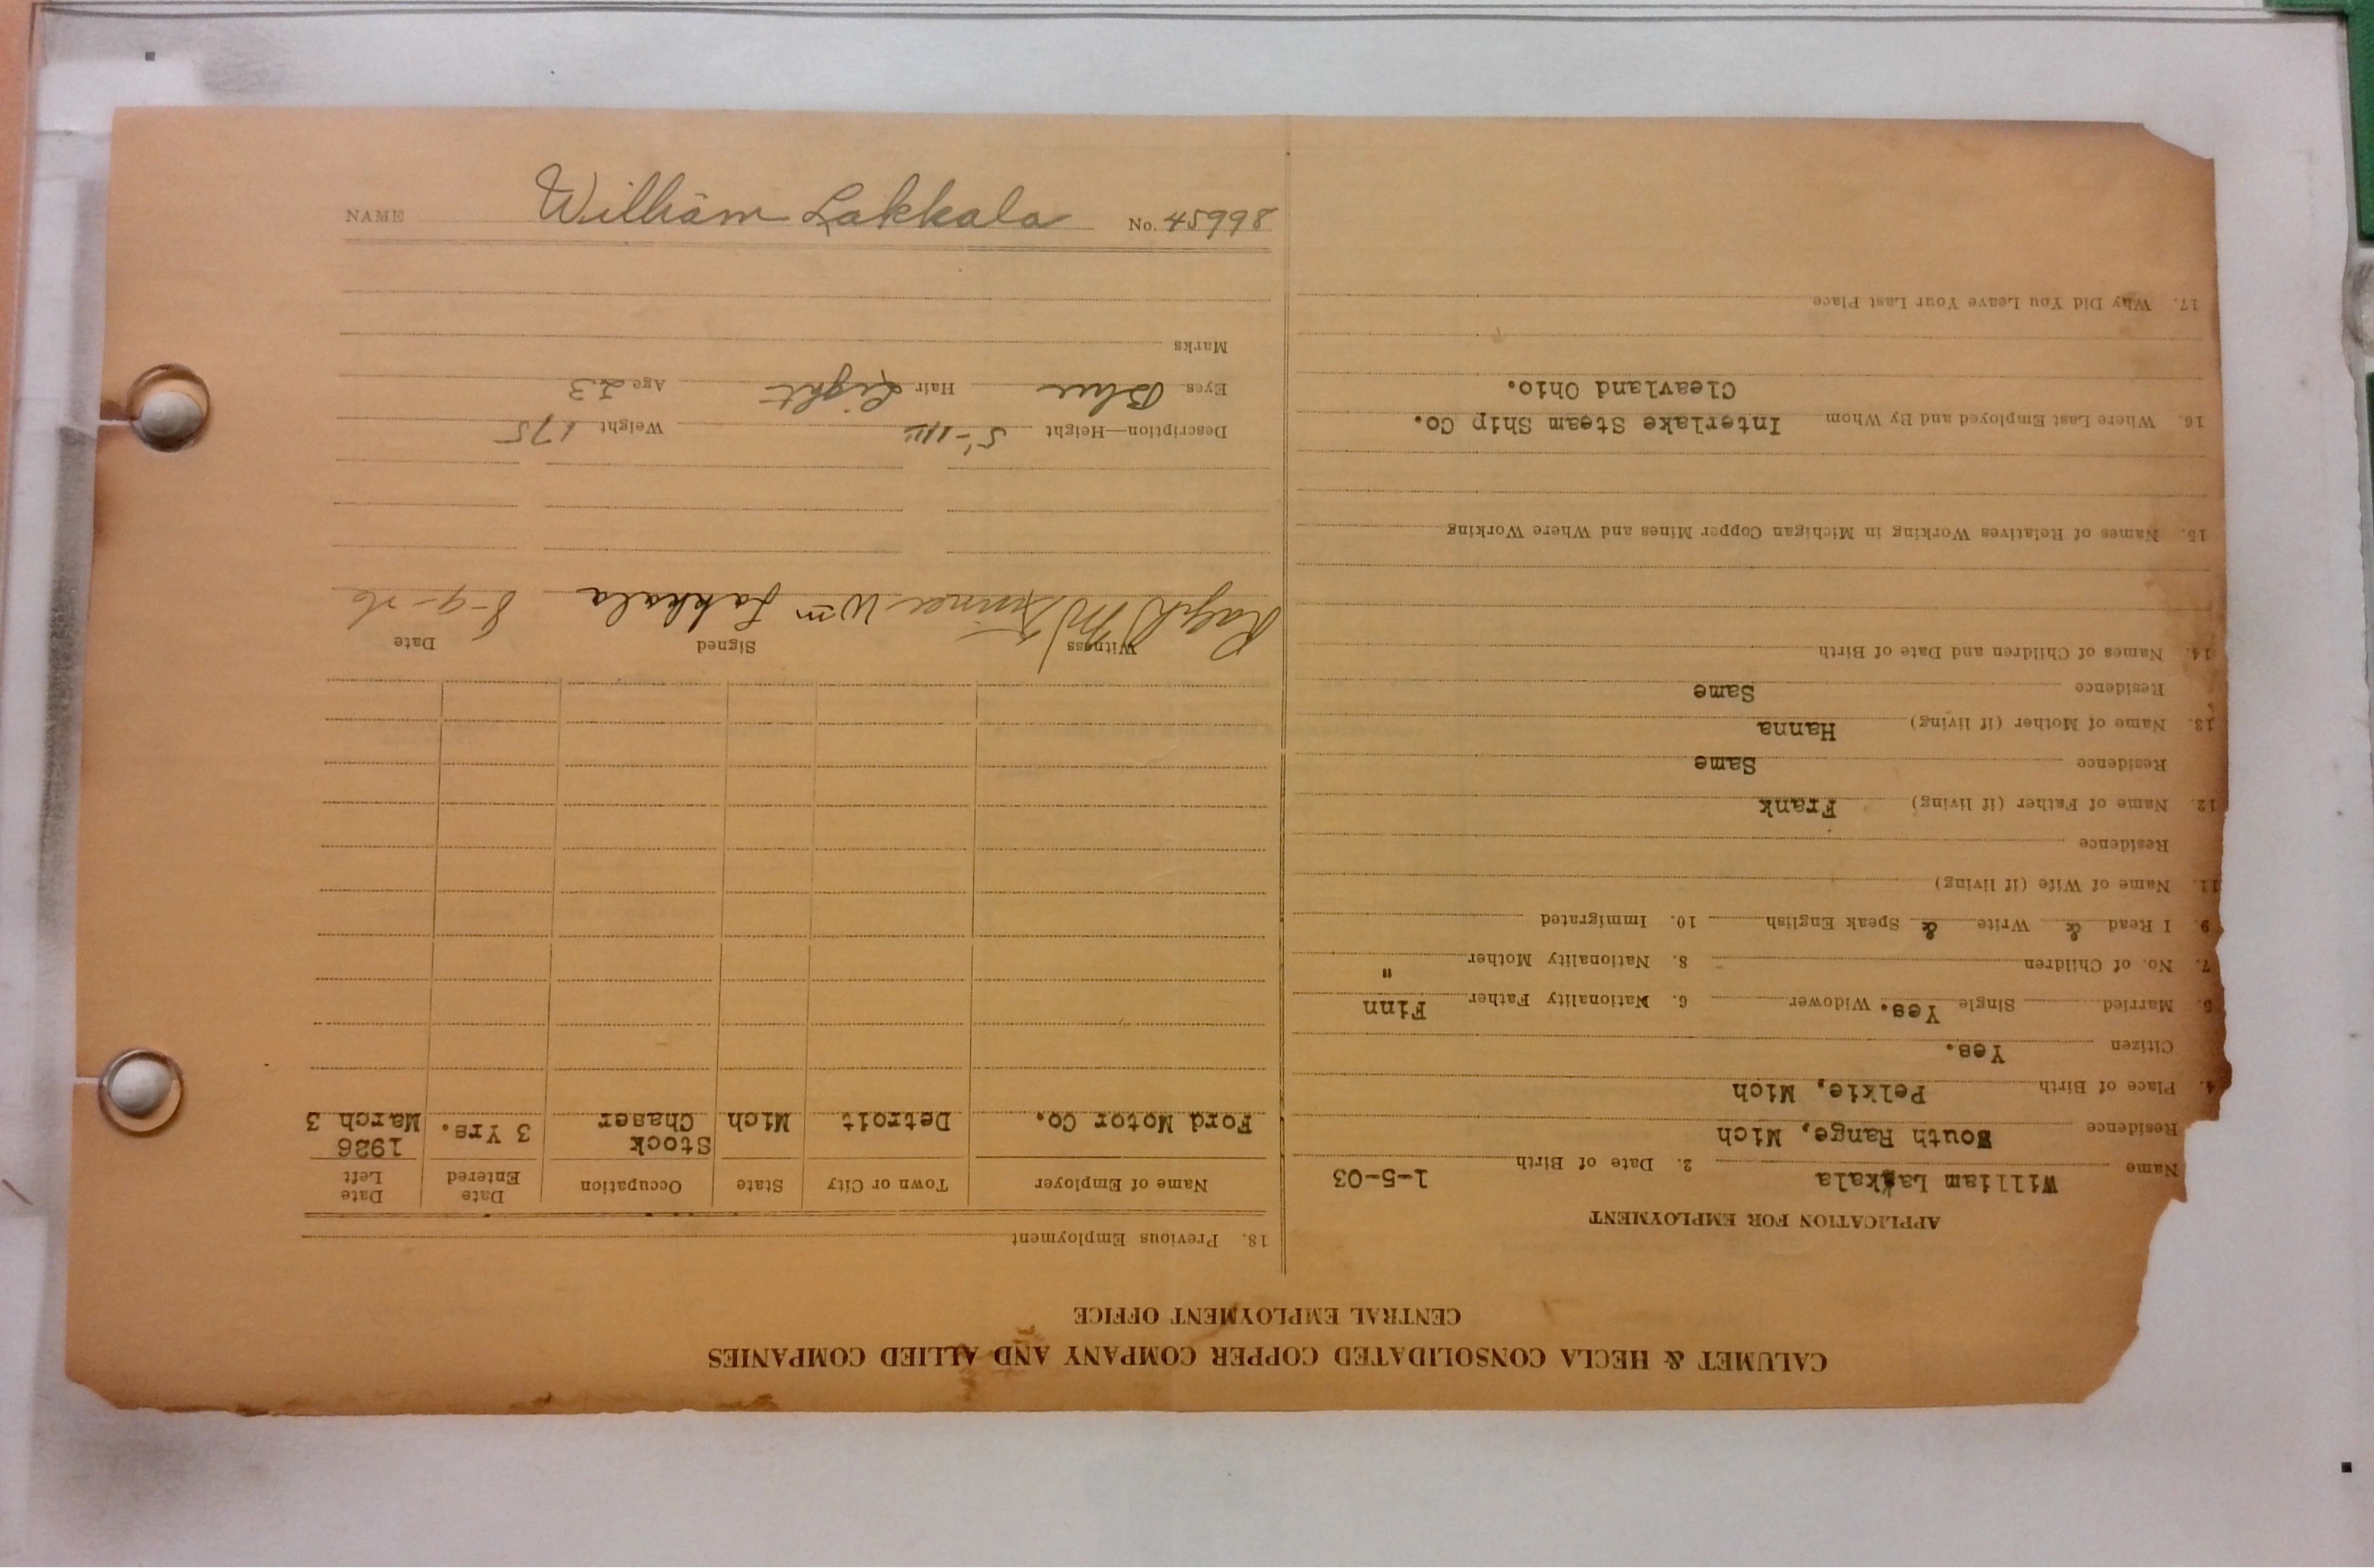 CALUMET & HECLA CONSOLIDATED COPPER COMPANY AND ALLIED COMPANIES
CENTRAL EMPLOYMENT OFFICE
APPLICATION FOR EMPLOYMENT
Name William Lakkala 2. Date of Birth 1-5-03
Residence South Range, Mich
4. Place of Birth Pelkie, Mich
Citizen Yes.
5. Married Single Yes. Widower 6. Nationality Father Finn
7. No. of Children 8. Nationality Mother "
9. I Read & Write & Speak English 10. Immigrated
11. Name of Wife (if living)
Residence
12. Name of Father (if living) Frank
Residence Same
13. Name of Mother (if living) Hanna
Residence Same
14. Names of Children and Date of Birth
15. Names of Relatives Working in Michigan Copper Mines and Where Working
16. Where Last Employed and By Whom Interlake Steam Ship Co.
Cleavland Ohio.
17. Why Did You Leave Your Last Place
18. Previous Employment
Name of Employer Town or City State Occupation Date Entered Date Left
Ford Motor Co. Detroit Mich Stock Chaser 3 Yrs. 1926 March 3
Witness Signed Date
Ralph Wm Lakkala 8-9-26
Description—Height 5'-11" Weight 175
Eyes Blue Hair Light Age 23
Marks
NAME William Lakkala No. 45998